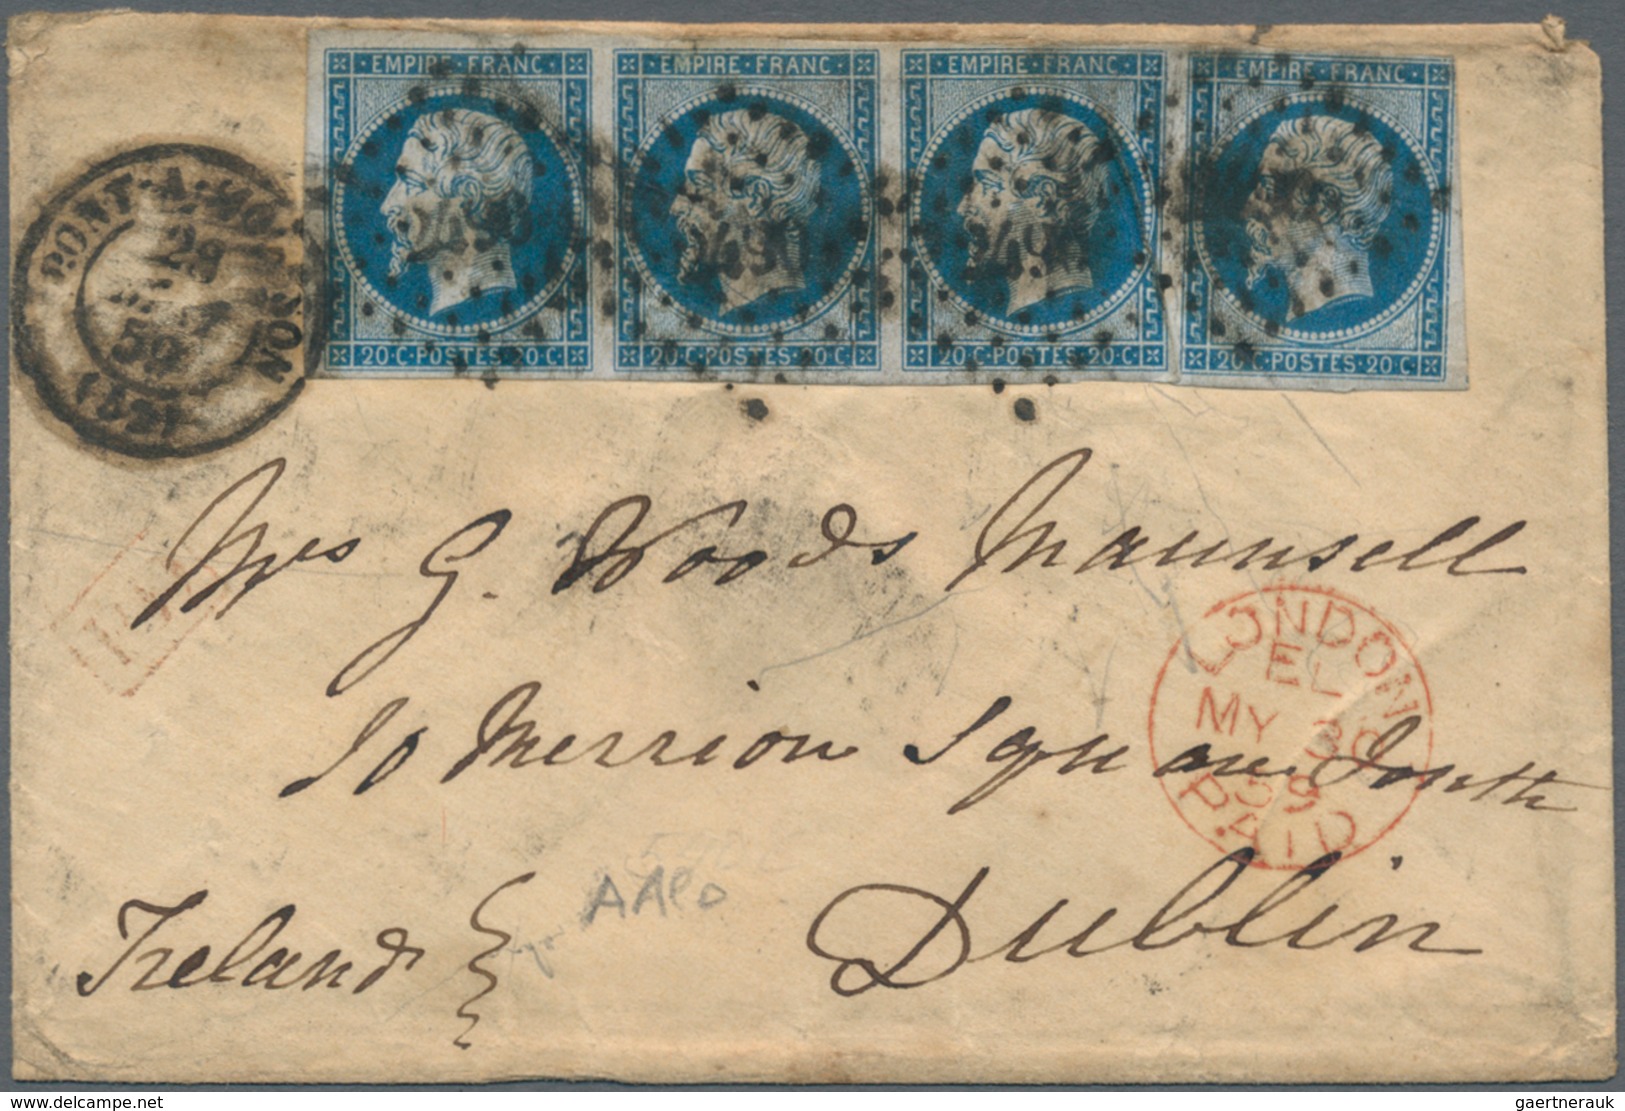 EMPIRE·FRANC EMPIRE·FRANC EMPIRE·FRANC EMPIRE·FRANC
2490 2490 2490
20·C·POSTES·20·C· 20·C·POSTES·20·C· 20·C·POSTES·20·C· 20·C·POSTES·20·C·
PONT-A-MOUSSON
29
59
(52)
Mrs G. Woods Maunsell
LONDON
EL
MY 30
59
PAID
10 Merrion Square South
AAPD
Dublin
Ireland
delcampe.net
gaertnerauk